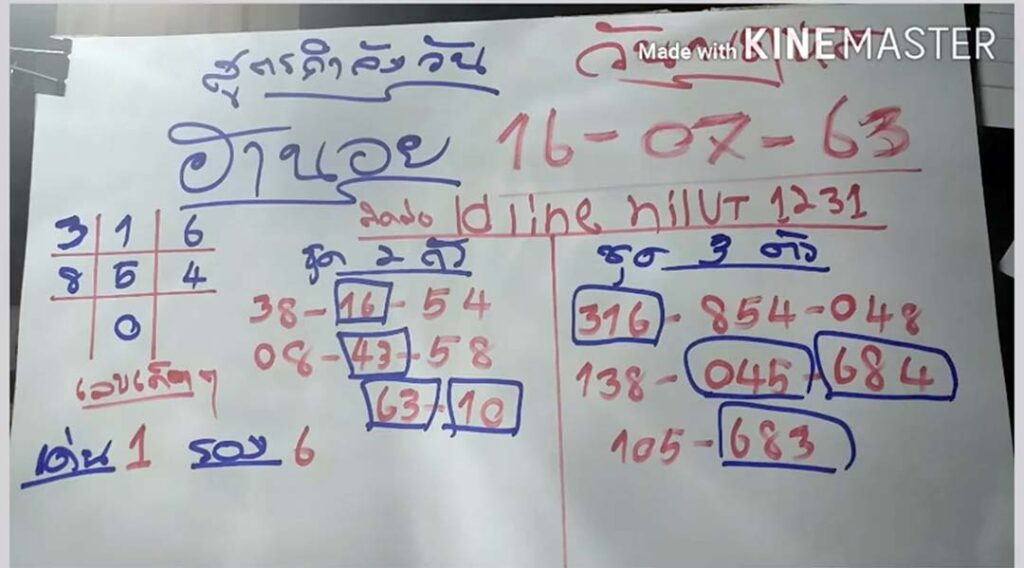 Made with KINEMASTER
สูตรกำลังวัน
ฮานอย 16-07-63
ติดต่อ Id line nilUT 1231
3 1 6
8 5 4
0
ชุด 2 ตัว
38-16-54
08-43-58
63-10
ชุด 3 ตัว
316-854-048
138-045-684
105-683
เลขเด็ดๆ
เด่น 1 รอง 6